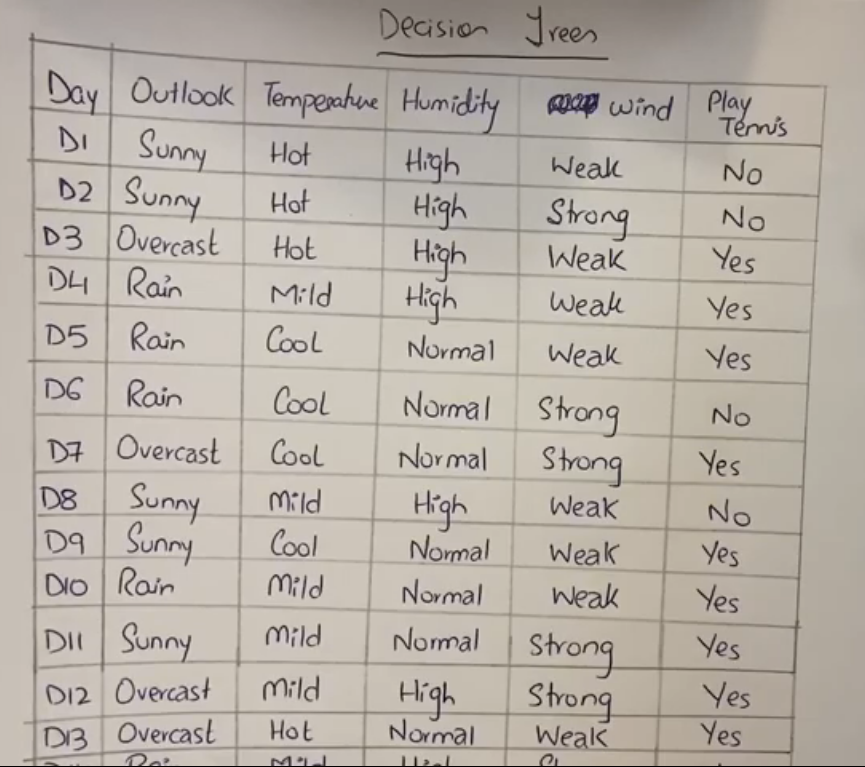 Decision Trees
Day Outlook Temperature Humidity Wind Play Tennis
D1 Sunny Hot High Weak No
D2 Sunny Hot High Strong No
D3 Overcast Hot High Weak Yes
D4 Rain Mild High Weak Yes
D5 Rain Cool Normal Weak Yes
D6 Rain Cool Normal Strong No
D7 Overcast Cool Normal Strong Yes
D8 Sunny Mild High Weak No
D9 Sunny Cool Normal Weak Yes
D10 Rain Mild Normal Weak Yes
D11 Sunny Mild Normal Strong Yes
D12 Overcast Mild High Strong Yes
D13 Overcast Hot Normal Weak Yes